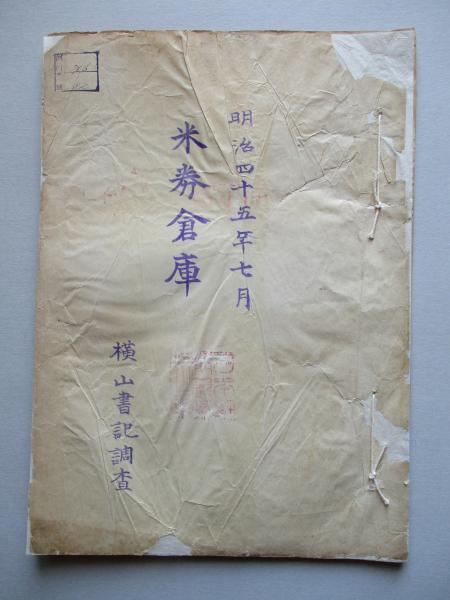 明治四十五年七月
米券倉庫
横山書記調査